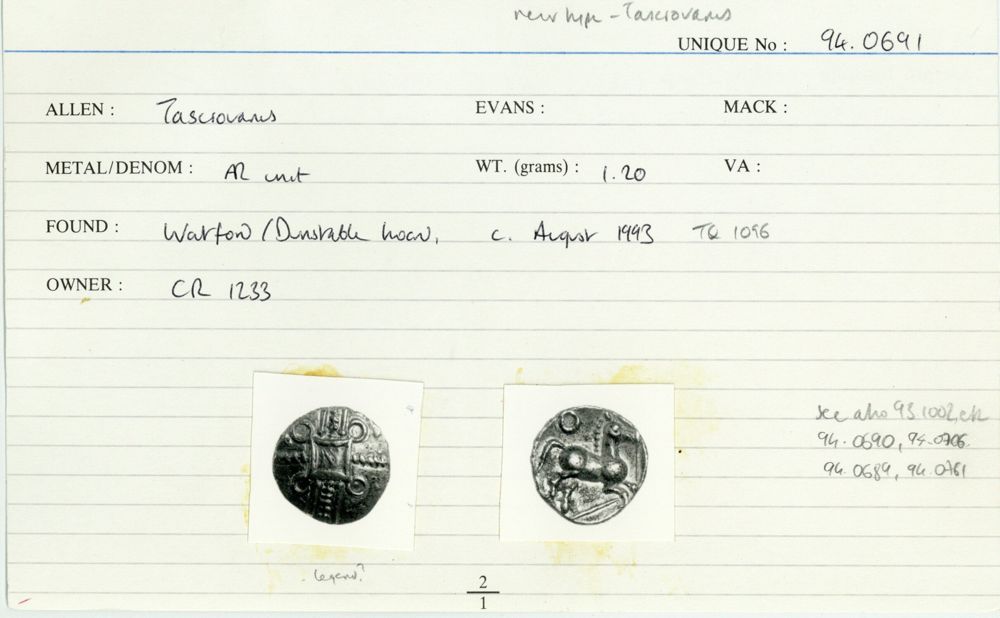 new type - Tasciovanus
UNIQUE No : 94.0691
ALLEN : Tasciovanus EVANS : MACK :
METAL/DENOM : AR unit WT. (grams) : 1.20 VA :
FOUND : Watford/Dunstable hoard, c. August 1993 TQ 1096
OWNER : CR 1233
see also 93.1002, etc
94.0690, 94.0706.
94.0689, 94.0761
legend?
2
1